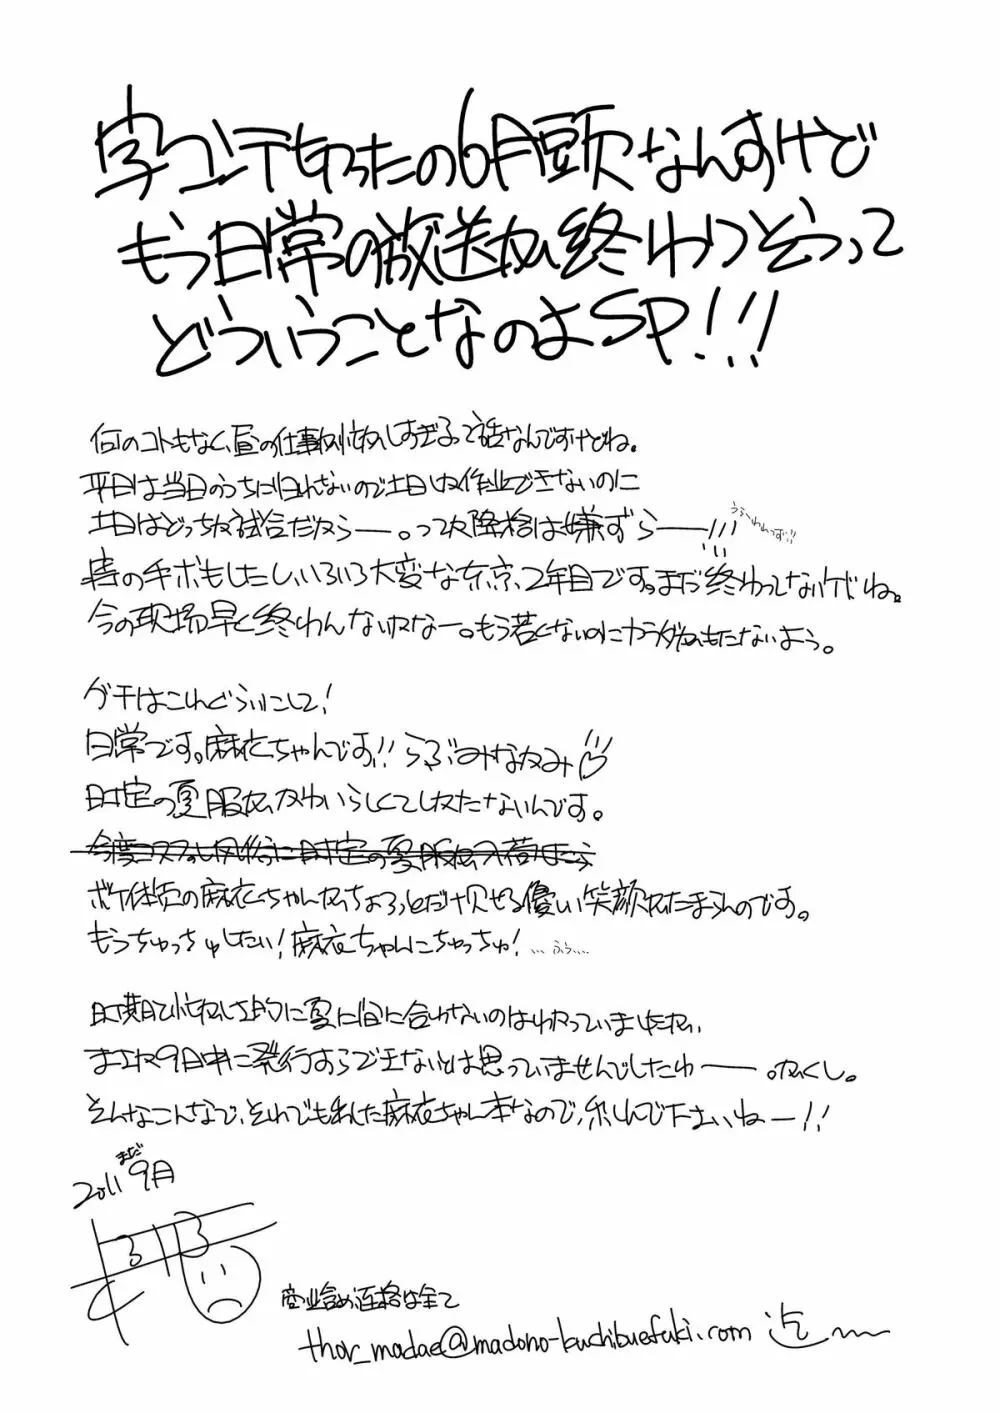 字コンテ切ったの6月頭なんすけど
もう日常の放送が終わりそうって
どういうことなのよSP!!!
何のコトもなく、昼の仕事が忙しすぎるって話なんですけどね。
平日は当日のうちに帰れないので土日しか作業できないのに
土日はどっちか試合だから――。ってか降格は嫌ずら――!!!
時の手ボもしたしいろいろ大変な東京、2年目です。まだ終わってしないケドね。
今の現場早く終わんないかなー。もう若くないのにカラダがもたないよう。
グチはこれぐらいにして!
日常です。麻衣ちゃんです!! らぶみなかみ♡
時定の夏服がかわいらしくてしかたないんです。
今度コスプレ風俗に時定の夏服が入荷したら
ボケ体質の麻衣ちゃんがちょろっとだけ見せる優しい笑顔がたまらんのです。
もうちゅっちゅしたい!麻衣ちゃんにちゅっちゅ! …ふぅ…
時期と忙しさ的に夏に間に合わないのはわかっていましたが、
まさか9月中に発行すらできないとは思っていませんでしたわ――。がくし。
そんなこんなで、それでも出した麻衣ちゃん本なので、楽しんで下さいねー!!
2011 まだ9月
商業含め連絡は全て
thor_madae@madono-kuchibuefuki.com 迄〜